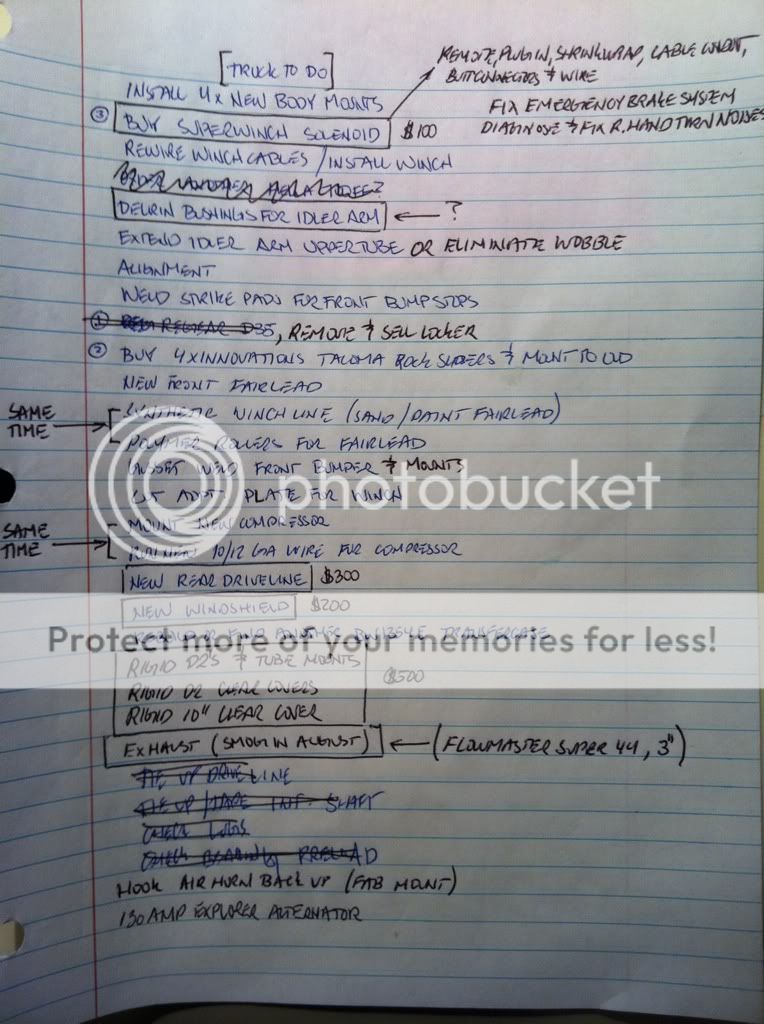 [TRUCK TO DO]
REMOTE, PLUG IN, SHRINKWRAP, CABLE
BUTT CONNECTORS & WIRE
INSTALL 4X NEW BODY MOUNTS
FIX EMERGENCY BRAKE SYSTEM
③ BUY SUPERWINCH SOLENOID $100
DIAGNOSE & FIX R. HAND TURN NOISES
REWIRE WINCH CABLES / INSTALL WINCH
DELRIN BUSHINGS FOR IDLER ARM ← ?
EXTEND IDLER ARM UPPER TUBE OR ELIMINATE WOBBLE
ALIGNMENT
WELD STRIKE PADS FOR FRONT BUMPSTOPS
① REGEAR D35, REMOVE & SELL LOCKER
② BUY 4XINNOVATIONS TACOMA ROCK SLIDERS & MOUNT TO
NEW FRONT FAIRLEAD
SAME TIME → SYNTHETIC WINCH LINE (SAND/PAINT FAIRLEAD)
POLYMER ROLLERS FOR FAIRLEAD
GUSSET WELD FRONT BUMPER & MOUNTS
photobucket
CUT ADPT. PLATE FOR WINCH
SAME TIME → MOUNT NEW COMPRESSOR
RUN NEW 10/12 GA WIRE FOR COMPRESSOR
NEW REAR DRIVELINE $300
NEW WINDSHIELD $200
REBUILD OR FIND ANOTHER TRANSFERCASE
Protect more of your memories for less!
RIGID D2'S & TUBE MOUNTS
$500
RIGID D2 CLEAR COVERS
RIGID 10" CLEAR COVER
EXHAUST (SMOG IN AUGUST) ← (FLOWMASTER SUPER 44, 3")
TIE UP DRIVELINE
TIE UP/TAPE INT. SHAFT
CHECK LUGS
CHECK BEARING PRELOAD
HOOK AIR HORN BACK UP (FAB MOUNT)
130 AMP EXPLORER ALTERNATOR